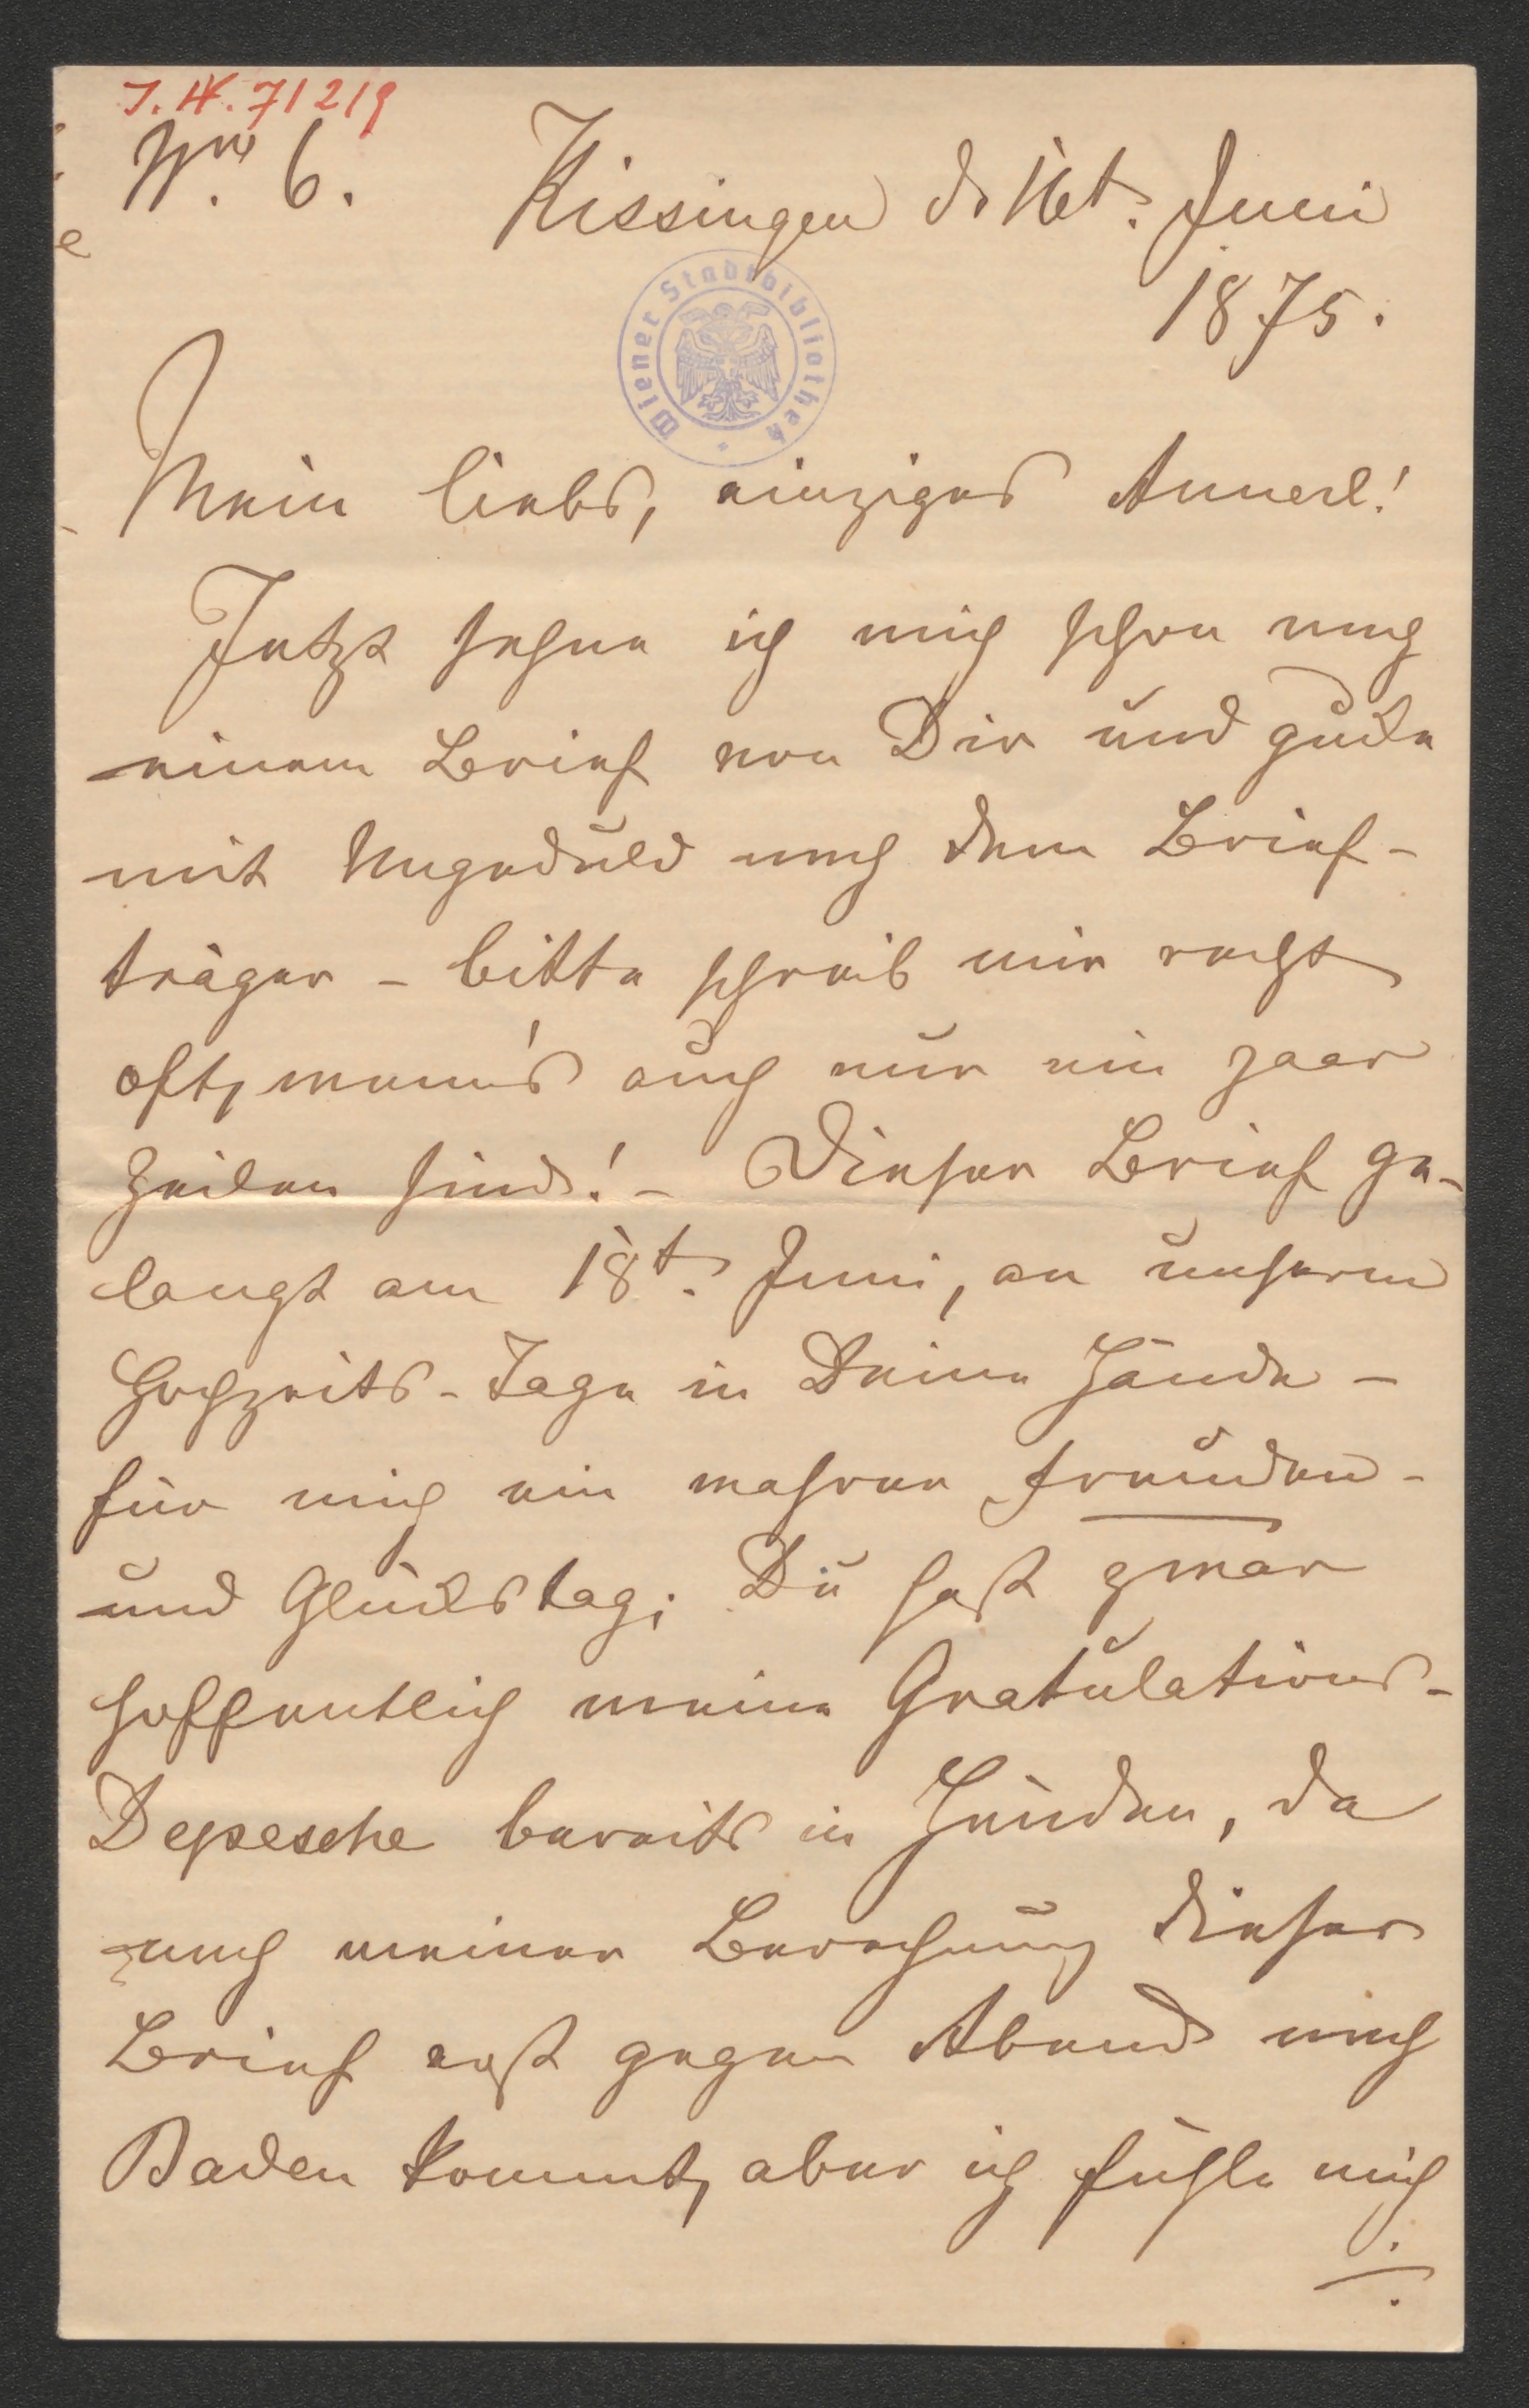 J. N. 71219
Nro 6.
Kissingen d. 16t. Juni
1875.
Wiener Stadtbibliothek
Mein liebs, einziges Annerl!
Jetzt sehne ich mich schon nach
einem Brief von Dir und gucke
mit Ungeduld nach dem Brief-
träger – bitte schreib mir recht
oft, wenn's auch nur ein paar
Zeilen sind! – Dieser Brief ge-
langt am 18t. Juni, an unserm
Hochzeits-Tage in Deine Hände –
für mich ein wahrer Freuden-
und Glückstag; Du hast zwar
hoffentlich meine Gratulations-
Depesche bereits in Händen, da
nach meiner Berechnung dieser
Brief erst gegen Abend nach
Baden kommt, aber ich fühle mich
./.